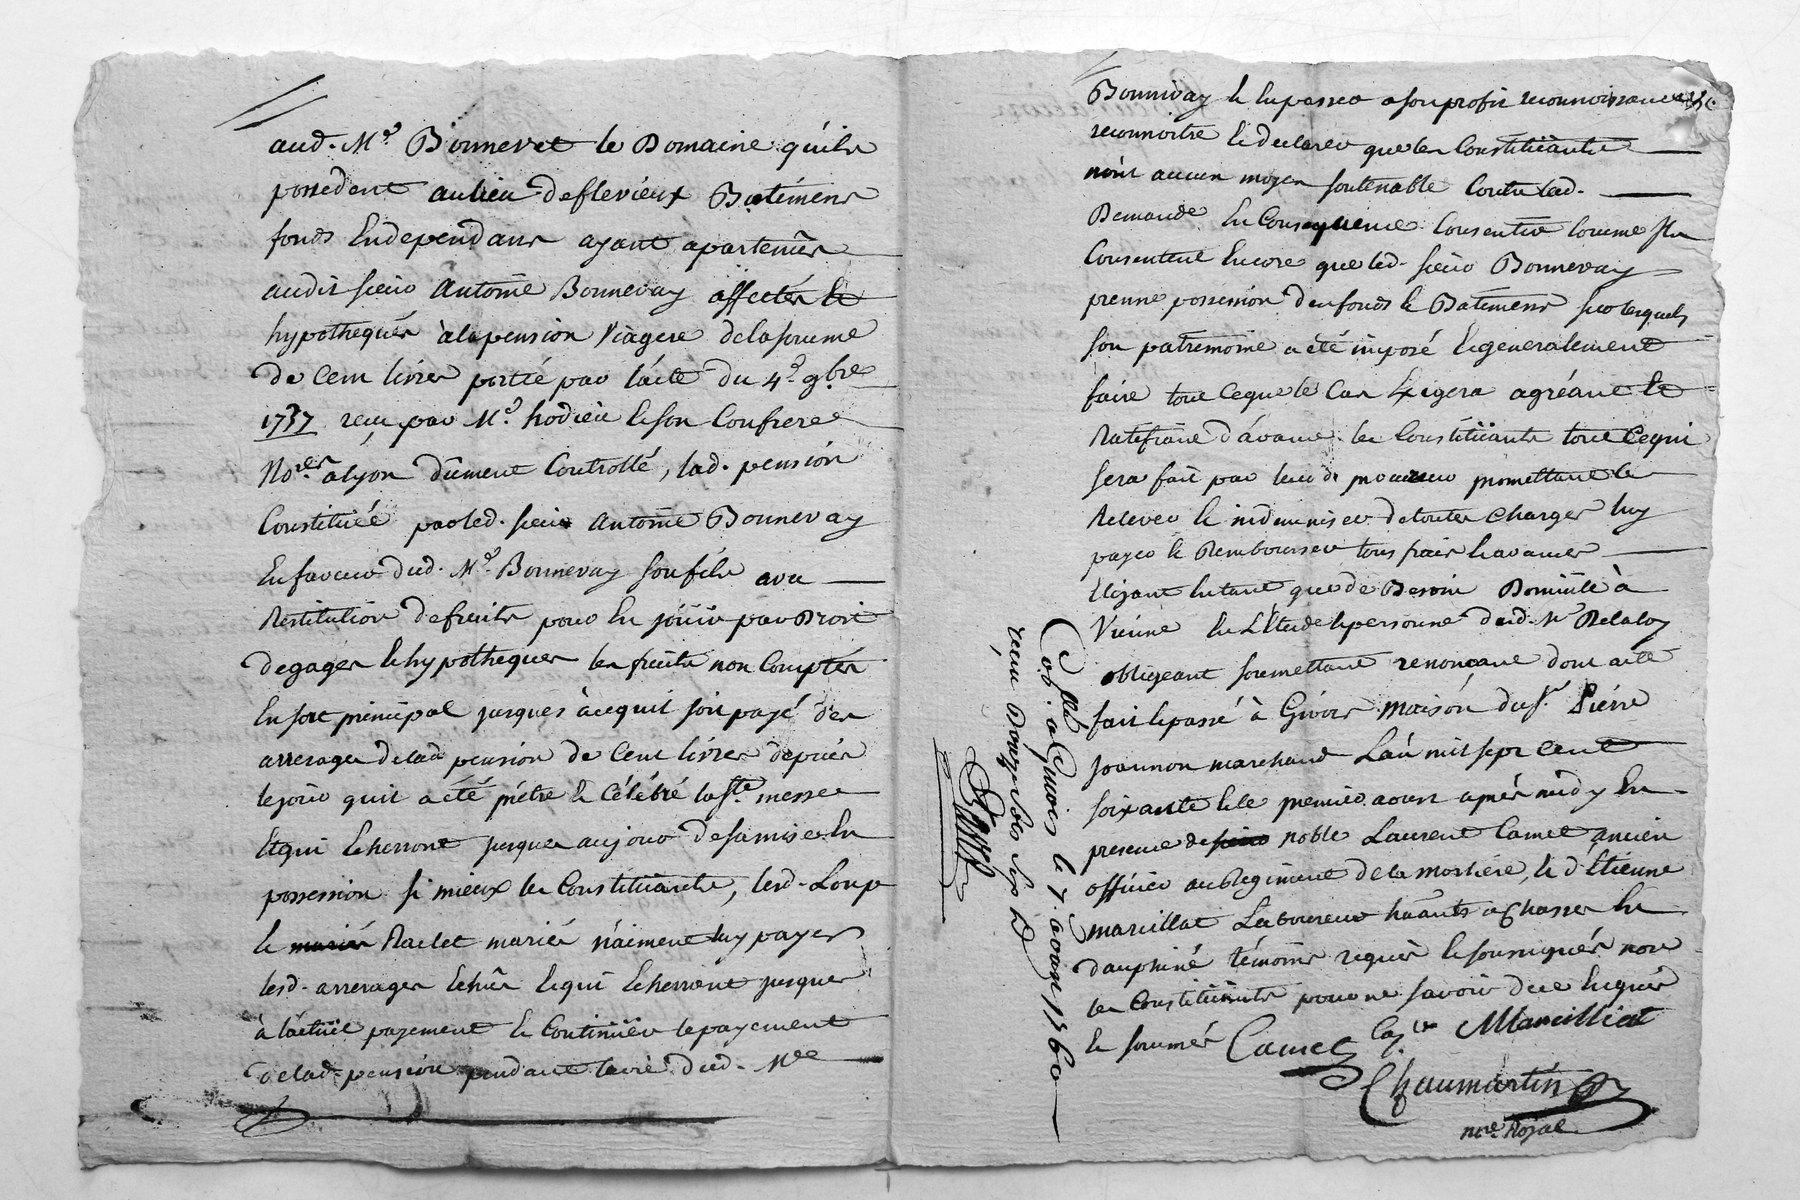 aud. Me Bonnevet le Domaine quils
possedent au lieu de flevieux Batimens
fonds Endependans ayant apartenus
audit sieur Antoine Bonnevay affectés et
hypothequés à la pension viagere de la somme
de Cent livres portée par l'acte du 4e 9bre
1737 reçu par Me hodieu et son Confrere
Nores a lyon dûment Controllé, lad. pension
Constituée par led. sieur Antoine Bonnevay
En faveur dud. Me Bonnevay son fils avec
Restitution de fruits pour En jouir par Droit
de gages et hypotheques les fruits non Comptés
En sort principal jusques à ce quil soit payé des
arrerages de lad. pension de Cent livres depuis
le jour quil a été prêtre et Célébré la Ste messe
Et qui Echerront jusques au jour de sa mise En
possession si mieux les Constituants, lesd. Loup
et mariés Raclet mariés n'aiment luy payer
lesd. arrerages Echûs Et qui Echerront jusques
à l'actuel payement et Continüer le payement
de lad. pension pendant la vie dud. Me
Bonnivay et En passer a son profit reconnoissance
reconnoitre et declarer que les Constitüants
n'ont aucun moyen soutenable Contre lad.
Demande En Consequence Consentir Comme Ils
Consentent Encore que led. sieur Bonnevay
prenne possession des fonds et Batimens sur lesquels
son patrimoine a été imposé Et generalement
faire tout ce que le Cas Exigera agréant et
Ratifiant d'avance les Constitüants tout ce qui
sera fait par leurd. procureur promettant le
Relever et indemniser de toutes charges luy
payer et Rembourser tous frais et avances
Elizant En tant que de Besoin Domicile à
Vienne En L'Etude et personne dud. Me Relaloy
obligeant soumettant renonçant dont acte
fait et passé à Givors maison du sr. Pierre
Joannon marchand L'an mil sept cent
soixante et le premier aoust après midy En
presence de sieur noble Laurent Camet ancien
officier au Regiment de la morliere, et d'Etienne
marcillat Laboureur hâants a Chasse En
dauphiné témoins requis et soussignés non
les Constitüants pour ne savoir de ce Enquis
et sommés Camet Marcilliat
Chaumartin
nore Royal
Collé a Givors le 7. aoust 1760
reçu Douze sols six d.